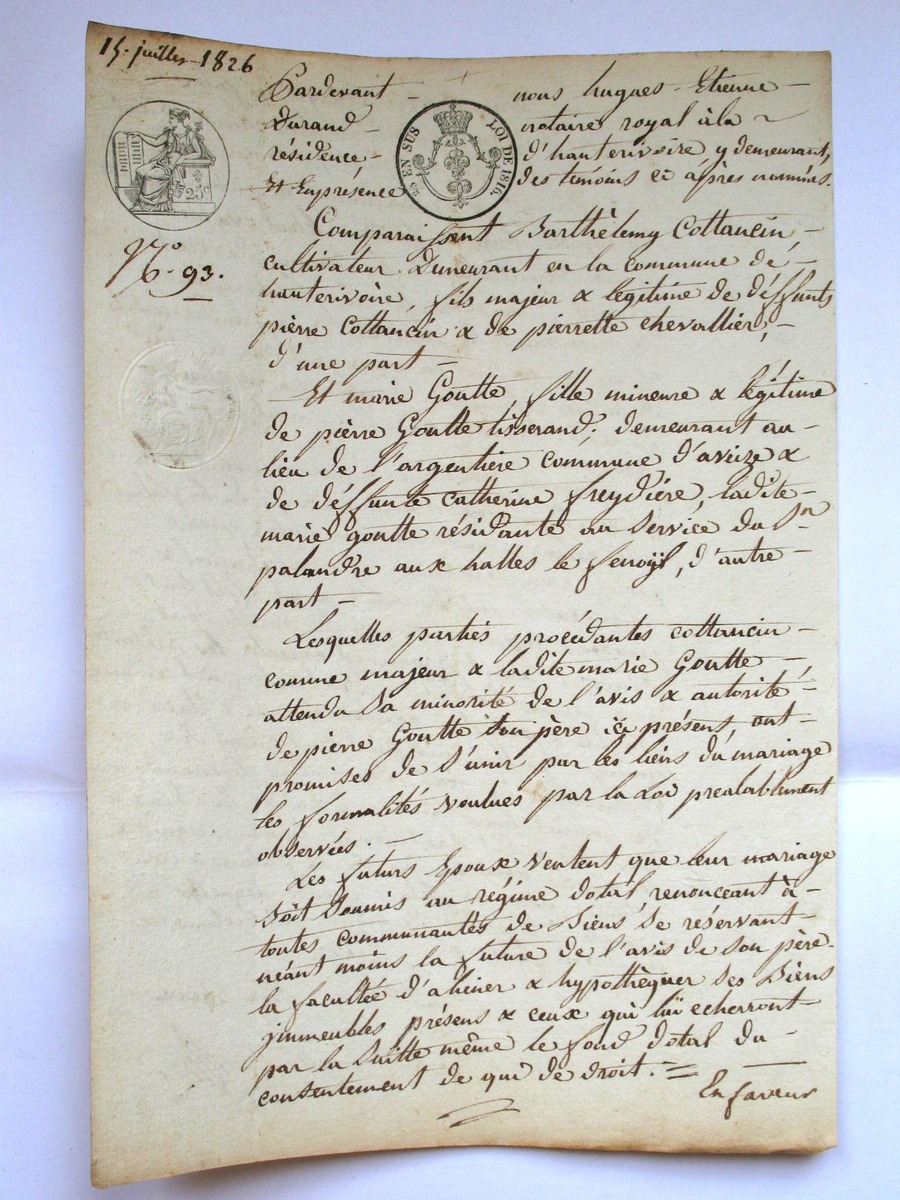 15. juillet 1826
Pardevant - nous hugues - Etienne -
Durand - notaire royal à la ~
résidence - d'hauterivoire y demeurant,
Et En présence des témoins ci après nommés.
EN SUS LOI DE 1816.
25c
N.o 93.
Comparaissent Barthèlemy Cottancin, -
cultivateur demeurant en la commune de -
hauterivoire, fils majeur & légitime de déffunts
pierre Cottancin & de pierrette chevallier, -
d'une part -
- Et marie Goutte, fille mineure & légitime
de pierre Goutte tisserand, demeurant au -
lieu de l'argentière commune d'aveize &
de déffunte catherine freydière, ladite -
marie goutte résidante au service du Sr
palandre aux halles le fenoÿl, d'autre -
part -
Lesquelles parties procédantes cottancin -
comme majeur & ladite marie Goutte -,
attendu sa minorité de l'avis & autorité -
de pierre Goutte son père ici présent, ont -
promises de s'unir par les liens du mariage
les formalités voulues par la Loi prealablement
observées. -
Les futurs Epoux veulent que leur mariage
soit soumis au régime dotal, renonceant à -
toutes communautés de Biens se réservant -
néant moins la future de l'avis de son père -
la facultée d'aliéner & hypothèquer ses Biens
jmmeubles présens & ceux qui lui echerront -
par la suitte même le fond dotal du -
consentement de qui de droit. =
En faveur